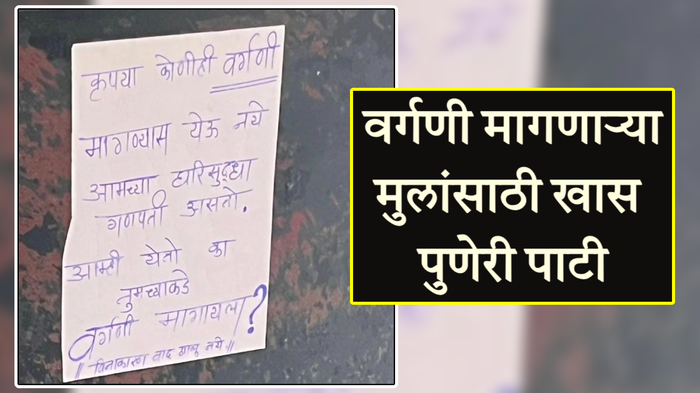 कृपया कोणीही वर्गणी
मागण्यास येऊ नये
आमच्या घरिसुद्धा
गणपती असतो.
आम्ही येतो का
तुमच्याकडे
वर्गणी मागायला?
॥ विनाकारण वाद घालू नये ॥
वर्गणी मागणाऱ्या
मुलांसाठी खास
पुणेरी पाटी